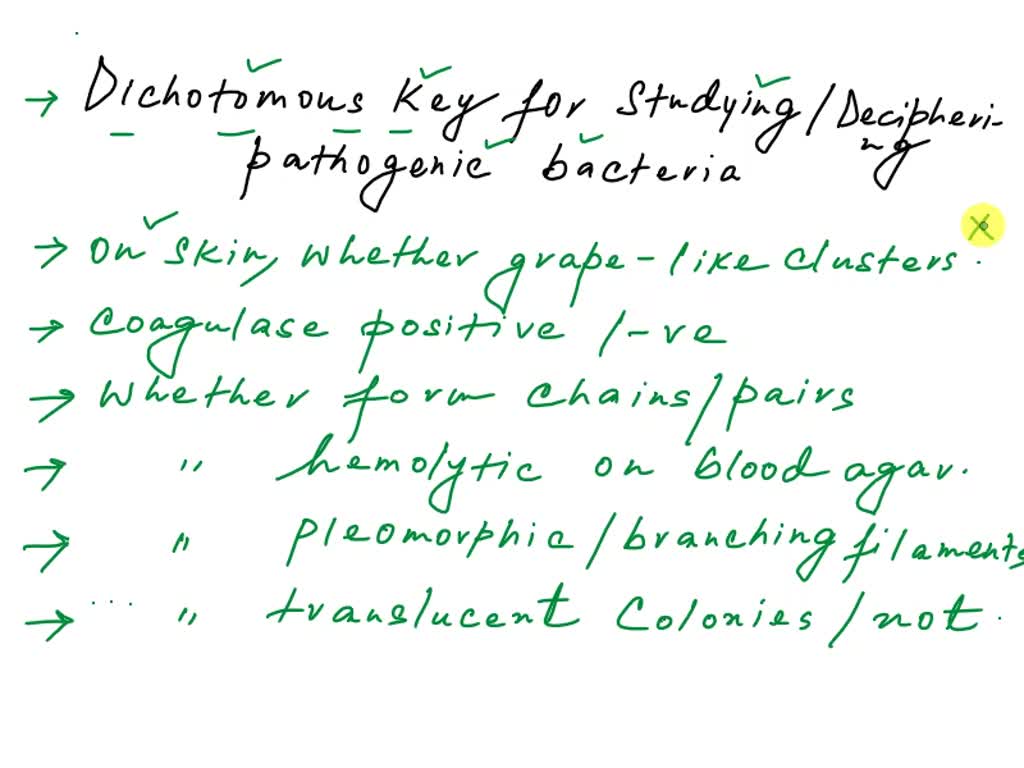 → Dichotomous Key for Studying/Decipheri-
ng
pathogenic bacteria
→ On skin, whether grape-like clusters.
→ Coagulase positive /-ve
→ Whether form chains/pairs
→ " hemolytic on blood agar.
→ " pleomorphic/branching filaments
→ " translucent Colonies/not.